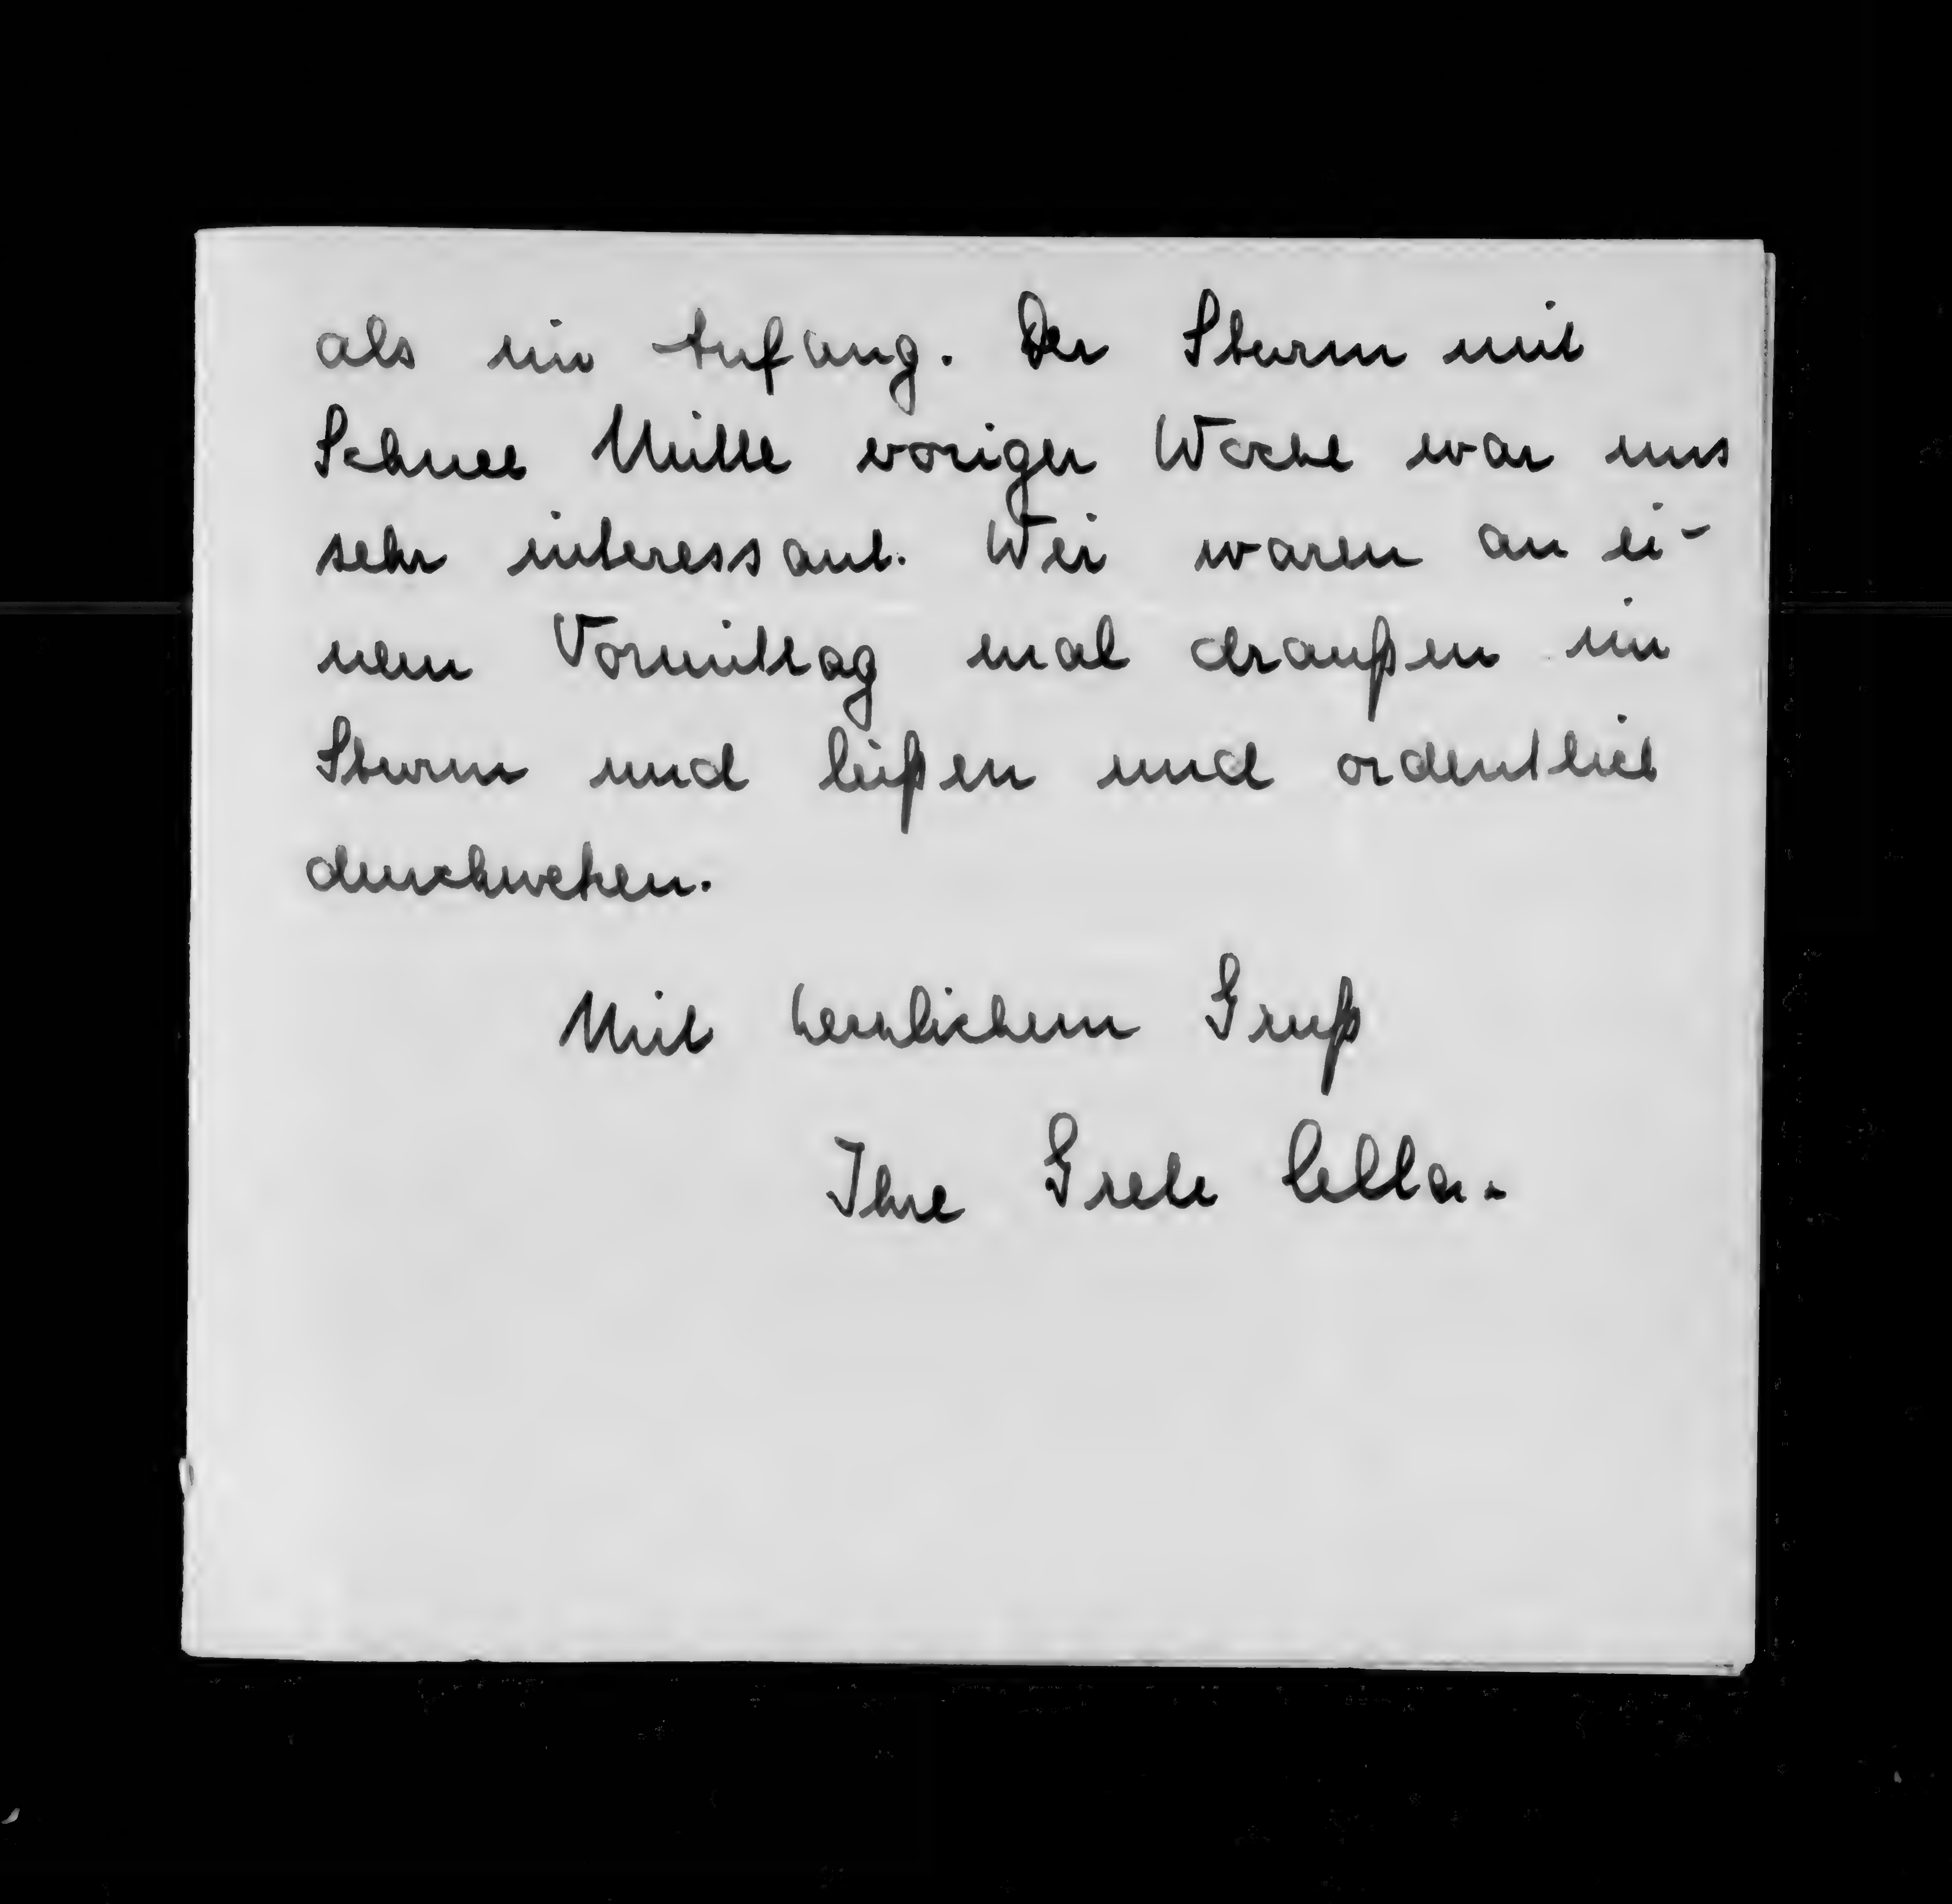 als im Anfang. Der Sturm mit
Schnee Mitte voriger Woche war uns
sehr interessant. Wir waren an ei-
nem Vormittag mal draußen im
Sturm und ließen uns ordentlich
durchwehen.
Mit herzlichem Gruß
Ihre Grete